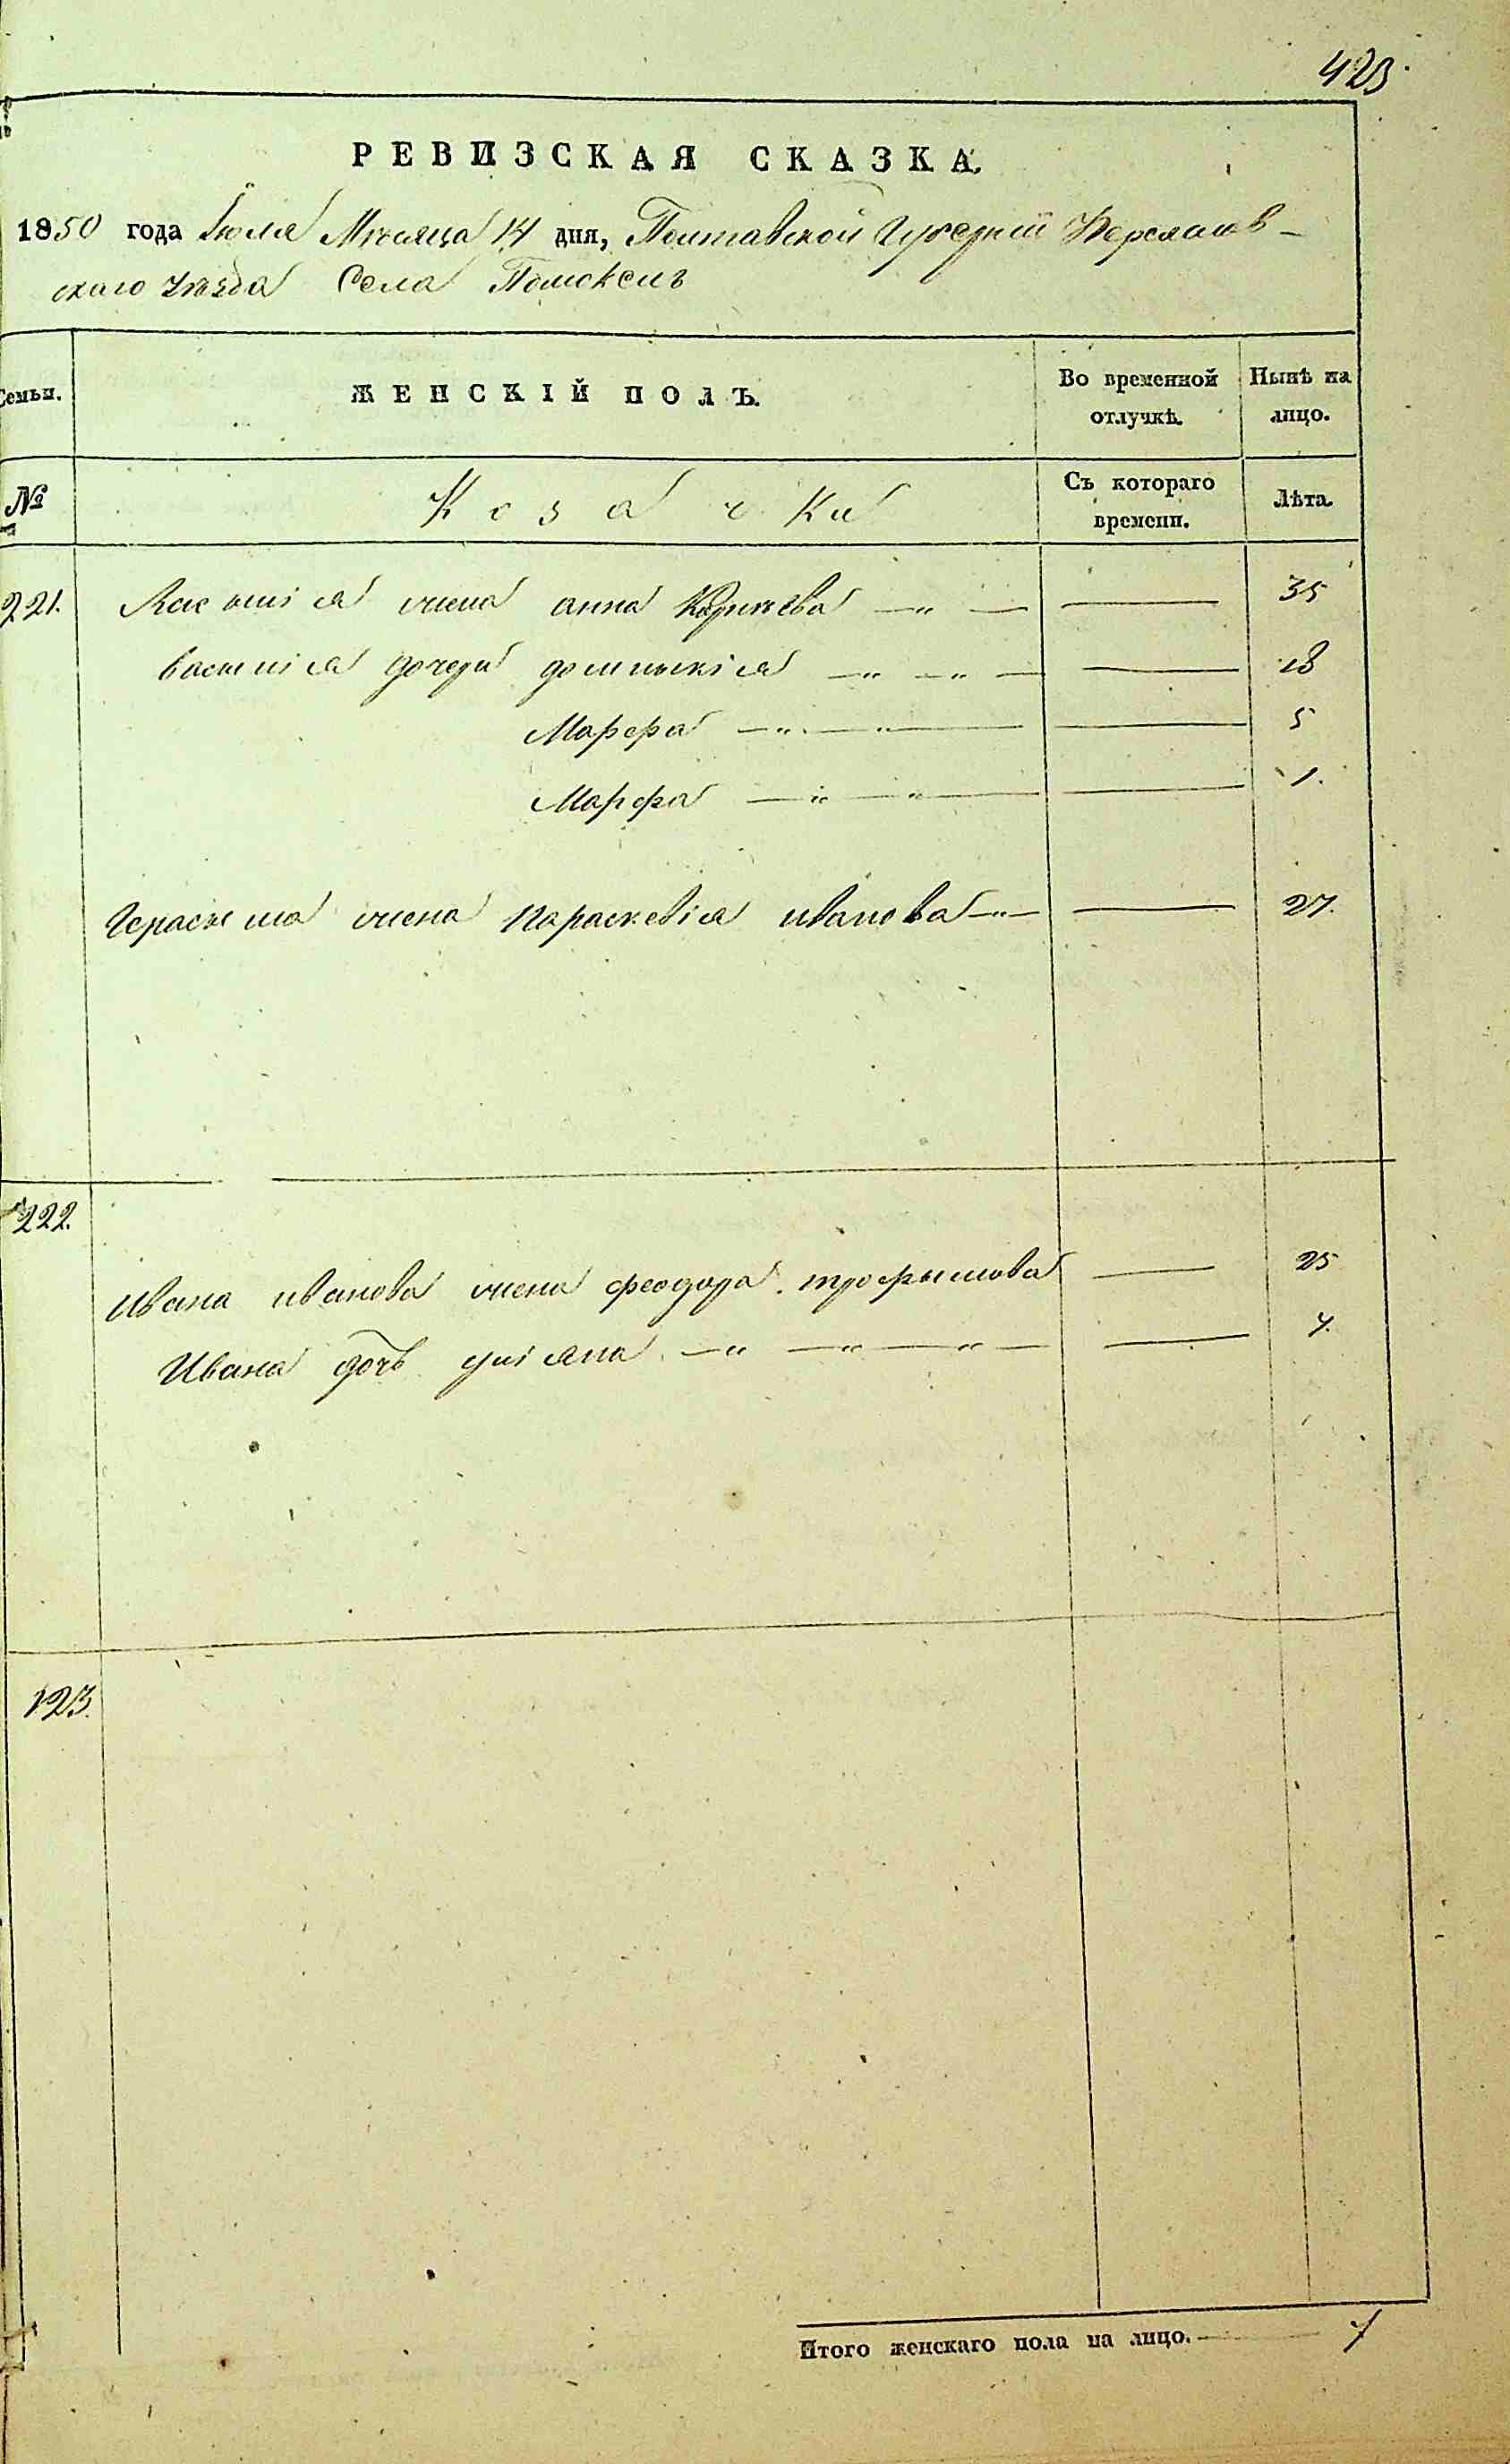 423.
РЕВИЗСКАЯ СКАЗКА.
1850 года Іюля Мѣсяца 14 дня, Полтавской Губерніи Переяслав-
скаго Уѣзда Села Помоклъ
Семьи. ЖЕНСКІЙ ПОЛЪ. Во временной отлучкѣ. Нынѣ на лицо.
№ Козачки Съ котораго времени. Лѣта.
221. жена анна 35
дочери домникія 18
Марфа 5
Марфа 1.
Герасима жена Параскевія иванова 27.
222.
Ивана иванова жена феодора трофымова 25
Ивана дочь уліяна 4.
123.
Итого женскаго пола на лицо. 7